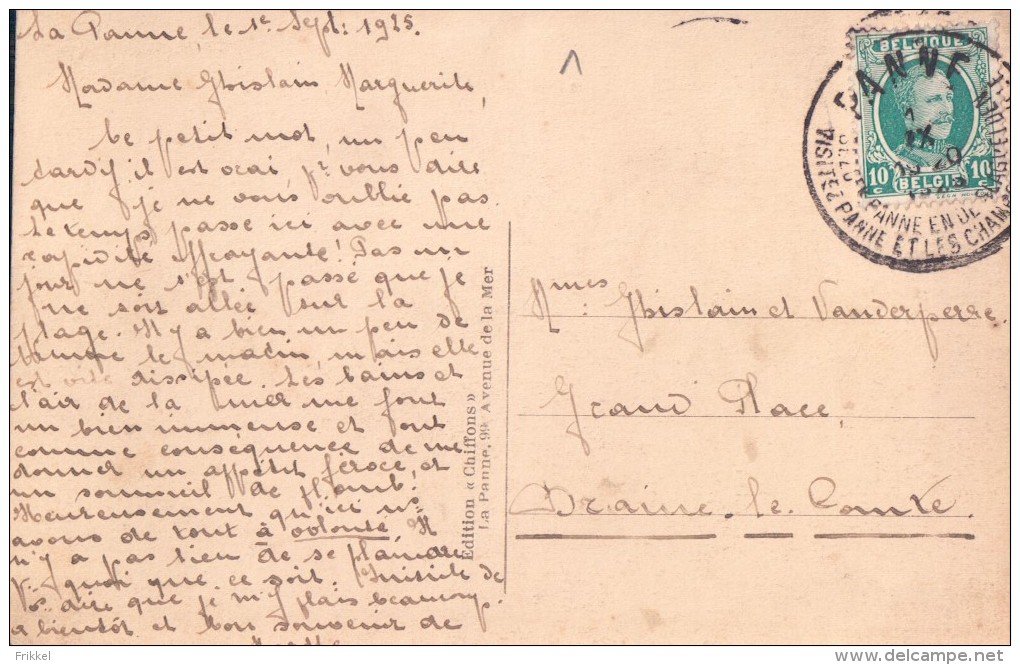 La Panne, le 1e Sept: 1925.
Madame Ghislain Marguerite,
Ce petit mot, un peu
tardif il est vrai pr vous dire
que je ne vous oublie pas.
Le temps passe ici avec une
rapidité effrayante! Pas un
jour ne s'est passé que je
ne sois allée sur la
plage. Il y a bien un peu de
brume le matin, mais elle
est vite dissipée. Les bains et
l'air de la mer me font
un bien immense et font
comme conséquence de me
donner un appétit féroce, et
un sommeil de plomb.
Heureusement qu'ici ns
avons de tout à volonté. Il
n'y a pas lieu de se plaindre
quoi que ce soit. Inutile de
vs dire que je m'y plais beaucoup.
A bientôt et bon souvenir de
Edition « Chiffons »
La Panne, 99, Avenue de la Mer
BELGIQUE
10 c
BELGIË
10 c
PANNE
1
IX
1925
VISITEZ PANNE ET LES CHAMPS
PANNE EN DE
Mmes Ghislain et Vanderperre.
Grand Place
Braine-le-Comte.
Frikkel
delcampe.net